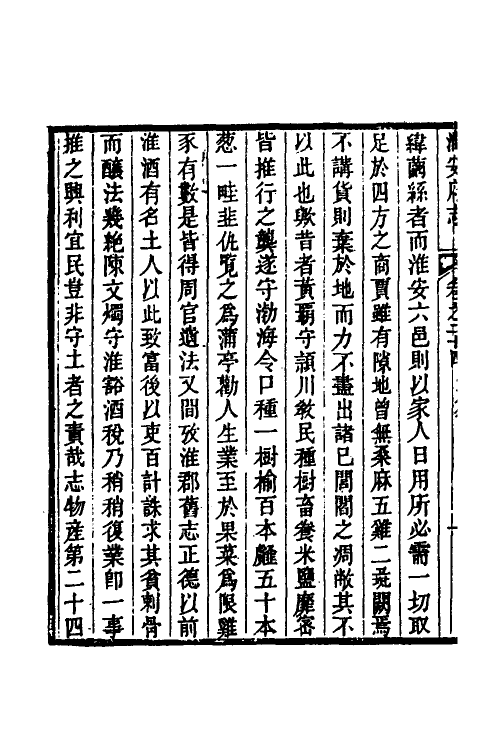 緯繭絲者而淮安六邑則以家人日用所必需一切取
足於四方之商賈雖有隙地曾無桑麻五雞二彘闕焉
不講貨則棄於地而力不盡出諸已閭閻之凋敝其不
以此也歟昔者黃霸守潁川敎民種樹畜養米鹽靡密
皆推行之龔遂守渤海令口種一樹榆百本薤五十本
葱一畦韭仇覽之爲蒲亭勸人生業至於果菜爲限雞
豕有數是皆得周官遺法又間攷淮郡舊志正德以前
淮酒有名土人以此致富後以吏百計誅求其貧刺骨
而釀法幾絶陳文燭守淮豁酒稅乃稍稍復業卽一事
推之興利宜民豈非守土者之責哉志物産第二十四